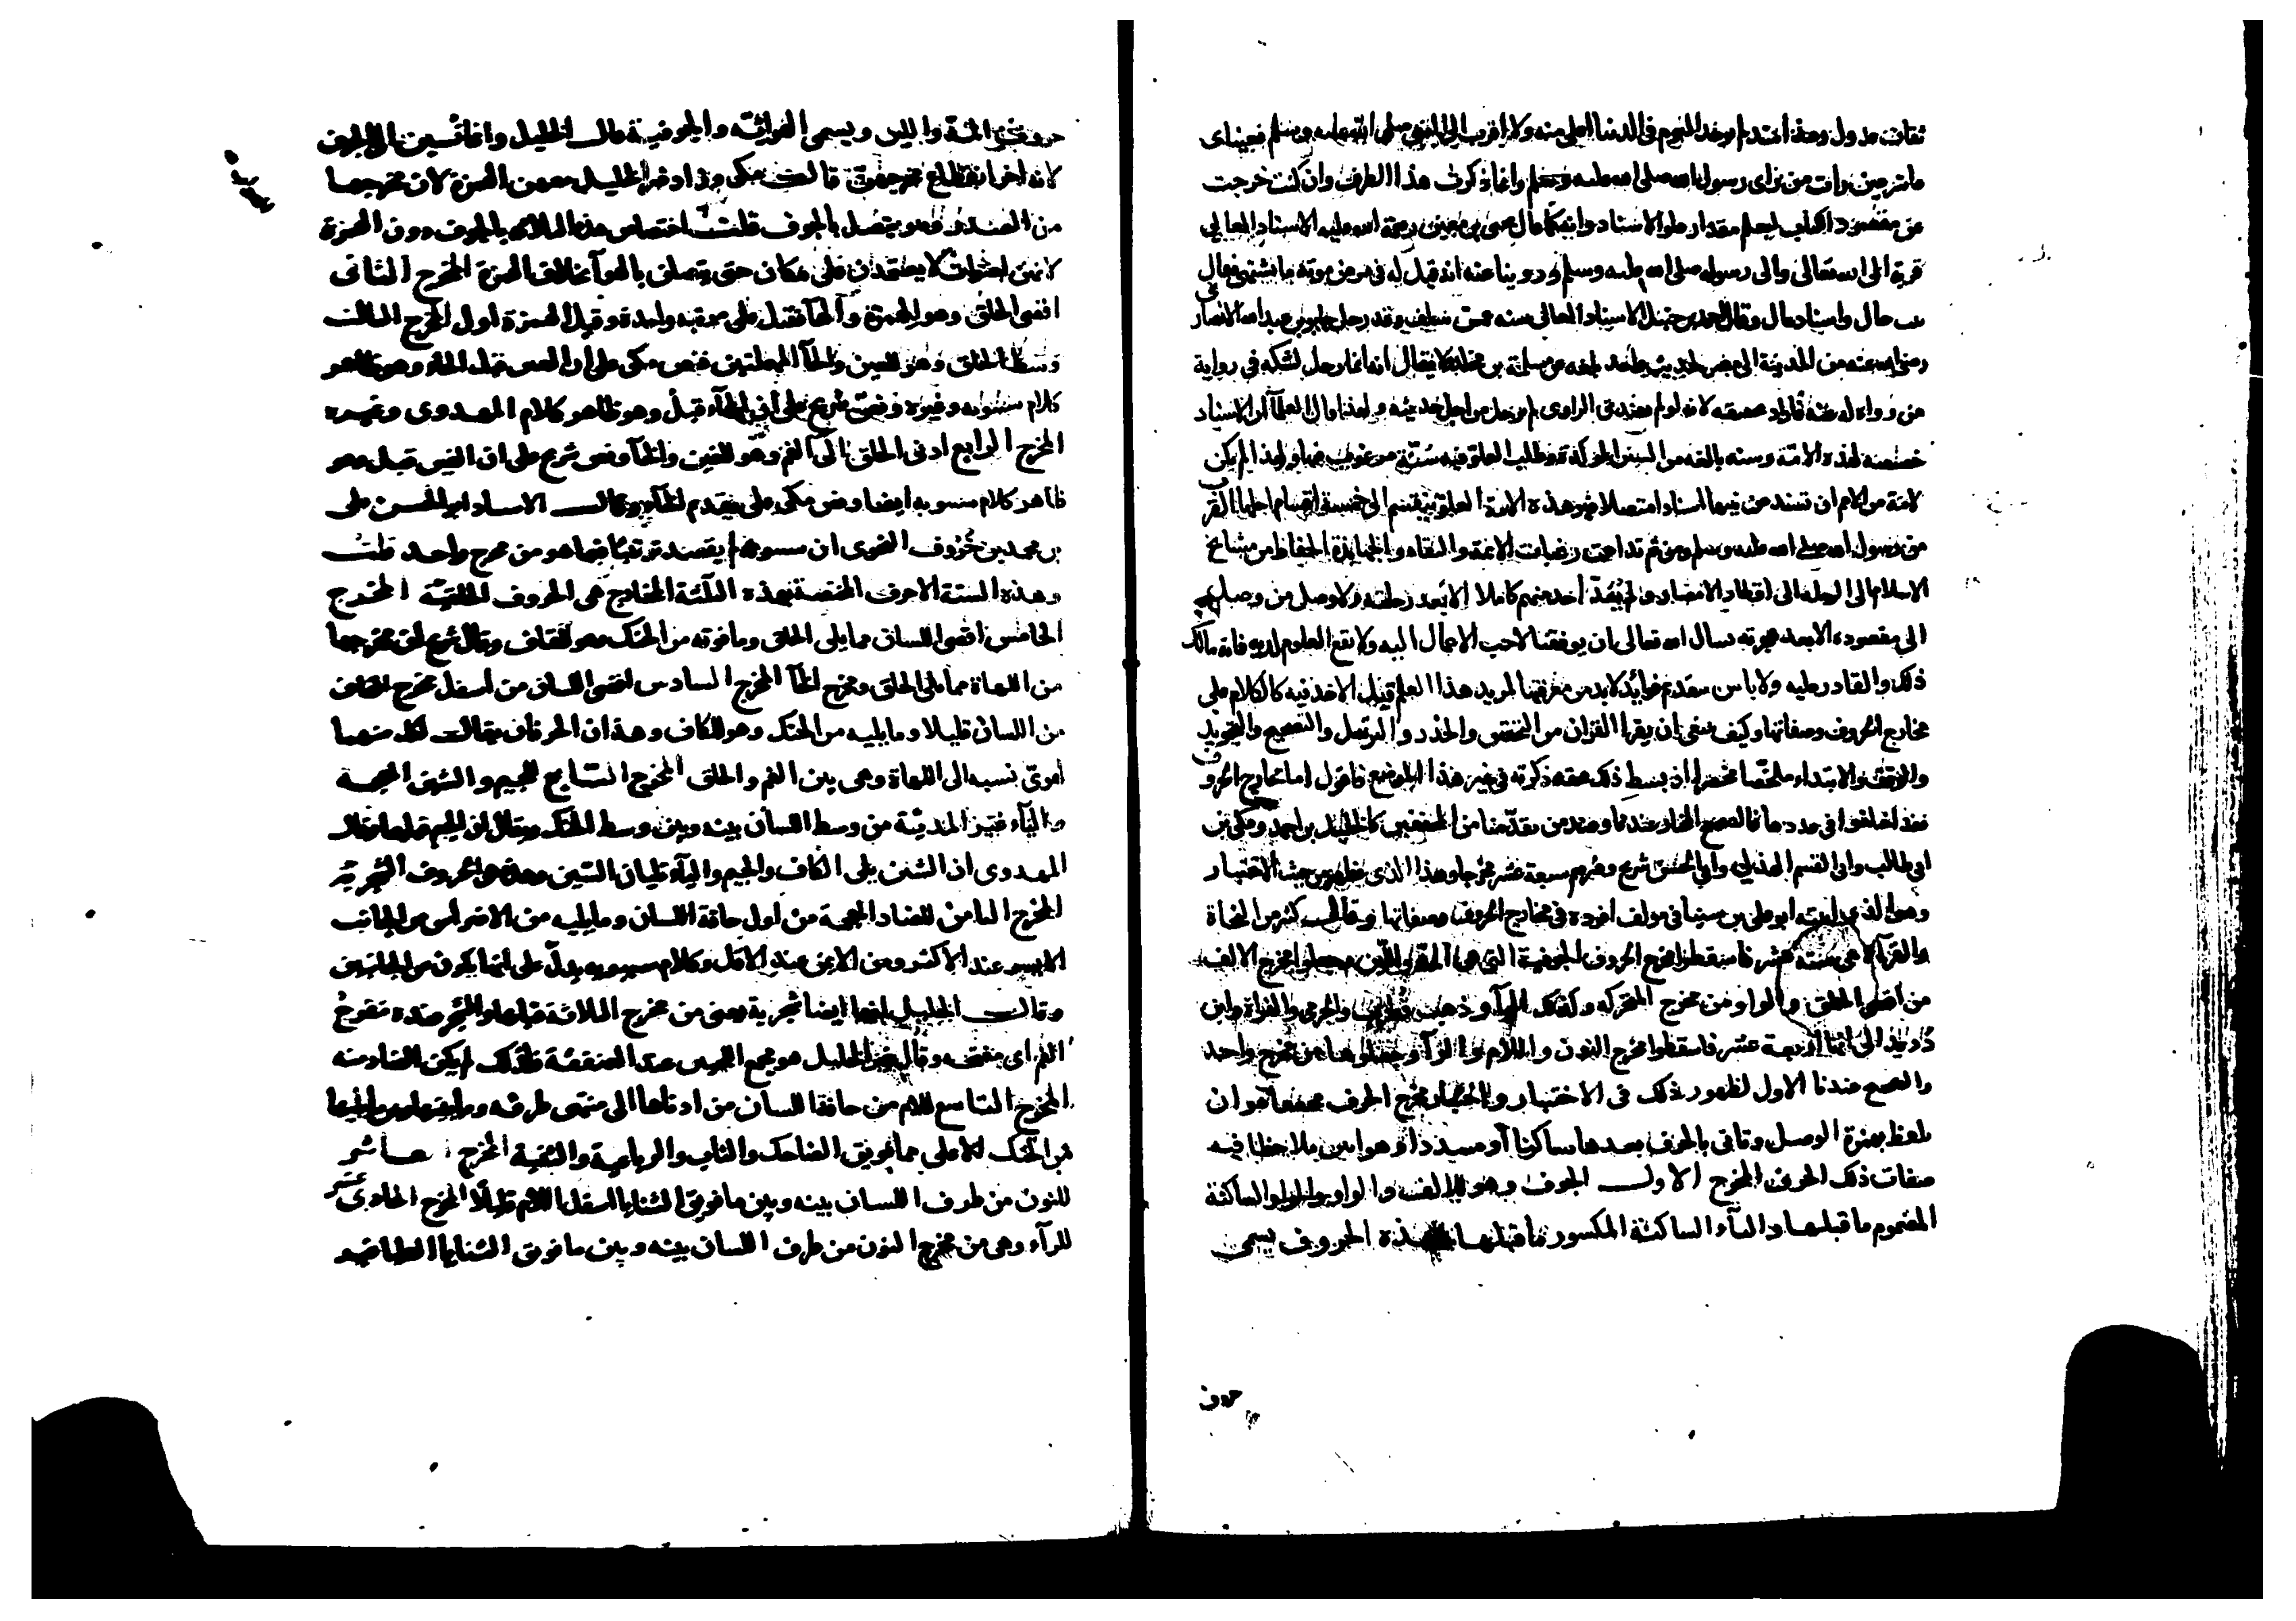 ثقات عدول وهذا عند لم يوجد اليوم في الدنيا اعلى منه ولا اقرب الى النبي صلى الله عليه وسلم فعيناى
ما تر عين رات من راى رسول الله صلى الله عليه وسلم وانما ذكرت هذا الطرف وان كنت خرجت
عن مقصود الكتاب ليعلم مقدار علو الاسناد وانه كما قال يحيى بن معين رحمة الله عليه الاسناد العالي
قربة الى الله تعالى والى رسوله صلى الله عليه وسلم وروينا عنه انه قيل له في مرض موته ما تشتهي فقال
بيت خال واسناد عال وقال احمد بن حنبل الاسناد العالي سنة عمن سلف وقد رحل جابر بن عبد الله الانصاري
رضي الله عنه من المدينة الى مصر لحديث واحد بلغه عن مسلمة بن مخلد ولا يقال انه انما رحل لشكه في رواية
من رواه له عنه فاراد تحقيقه لانه لو لم يصدق الراوي لم يرحل من اجل حديثه ولهذا قال العلما ان الاسناد
خصيصة لهذه الامة وسنة بالغة من السنن المؤكدة وطلب العلو فيه سنة مرغوب فيها ولهذا لم يكن
لامة من الامم ان تسند عن نبيها اسنادا متصلا غير هذه الامة العلو ينقسم الى خمسة اقسام اجلها القرب
من رسول الله صلى الله عليه وسلم ومن ثم تداعت رغبات الائمة والنقاد والجهابذة الحفاظ من مشايخ
الاسلام الى الرحلة الى اقطار الامصار ولم يعد احد منهم كاملا الا بعد رحلته ولا وصل من وصل منهم
الى مقصوده الا بعد هجرته نسال الله تعالى ان يوفقنا لاحب الاعمال اليه ولانفع العلوم لديه فانه مالك
ذلك والقادر عليه ولا باس بتقديم فوائد لابد من معرفتها لمريد هذا العلم قبل الاخذ فيه كالكلام على
مخارج الحروف وصفاتها وكيف ينبغي ان يقرا القران من التحقيق والحدر والترتيل والتصحيح والتجويد
والوقف والابتداء ملخصا مختصرا اذ بسط ذلك بحقه ذكرته في غير هذا الموضع فاقول اما مخارج الحروف
فقد اختلفوا في عددها فالصحيح المختار عندنا وعند من تقدمنا من المحققين كالخليل بن احمد ومكي بن
ابي طالب وابي القسم الهذلي وابي الحسن شريح وغيرهم سبعة عشر مخرجا وهذا الذي يظهر من حيث الاختبار
وهو الذي اثبته ابو علي بن سينا في مولف افرده في مخارج الحروف وصفاتها وقال كثير من النحاة
والقرآء هي ستة عشر فاسقطوا مخرج الحروف الجوفية التي هي المد واللين وجعلوا مخرج الالف
من اقصى الحلق والواو من مخرج المتحركة وكذلك اليآء وذهب قطرب والجرمي والفرآء وابن
دريد الى انها اربعة عشر فاسقطوا مخرج النون واللام والرآء وجعلوها من مخرج واحد
والصحيح عندنا الاول لظهور ذلك في الاختبار واختبار مخرج الحرف محققا هو ان
تلفظ بهمزة الوصل وتاتي بالحرف بعدها ساكنا او مشددا وهو ابين ملاحظا فيه
صفات ذلك الحرف المخرج الاول الجوف وهو للالف والواو الساكنة
المضموم ما قبلها واليآء الساكنة المكسور ما قبلها وهذه الحروف تسمى
حروف
حروف المد واللين وتسمى الهوائية والجوفية قال الخليل وانما نسبن الى الجوف
لانه اخر انقطاع مخرجهن قال مكي وزاد غير الخليل معهن الهمزة لان مخرجها
من الصدر وهو يتصل بالجوف قلت اختصاص هذه الثلاثة بالجوف دون الهمزة
لانهن اصوات لا يعتمدن على مكان حتى يتصلن بالهوآء بخلاف الهمزة المخرج الثاني
اقصى الحلق وهو للهمزة والهآء فقيل على مرتبة واحدة وقيل الهمزة اول المخرج الثالث
وسط الحلق وهو للعين والحآء المهملتين فنص مكي على ان العين قبل الحاء وهو ظاهر
كلام سيبويه وغيره ونص شريح على ان الحآء قبل وهو ظاهر كلام المهدوي وغيره
المخرج الرابع ادنى الحلق الى الفم وهو للغين والخآء ونص شريح على ان الغين قبل وهو
ظاهر كلام سيبويه ايضا ونص مكي على تقديم الخآء وقال الاستاد ابو الحسن علي
بن محمد بن خروف النحوي ان سيبويه لم يقصد ترتيبا فيما هو من مخرج واحد قلت
وهذه الستة الاحرف المختصة بهذه الثلثة المخارج هي الحروف الحلقية المخرج
الخامس اقصى اللسان مما يلي الحلق وما فوقه من الحنك وهو للقاف وقال شريح ان مخرجها
من اللهاة مما يلي الحلق ومخرج الخآء المخرج السادس اقصى اللسان من اسفل مخرج القاف
من اللسان قليلا وما يليه من الحنك وهو للكاف وهذان الحرفان يقال لكل منهما
لهوي نسبة الى اللهاة وهي بين الفم والحلق المخرج السابع للجيم والشين المعجمة
واليآء غير المدية من وسط اللسان بينه وبين وسط الحنك ويقال ان الجيم قبلها وقال
المهدوي ان الشين يلي الكاف والجيم واليآء تليان الشين وهذه هي الحروف الشجرية
المخرج الثامن للضاد المعجمة من اول حافة اللسان وما يليه من الاضراس من الجانب
الايسر عند الاكثر ومن الايمن عند الاقل وكلام سيبويه يدل على انها تكون من الجانبين
وقال الخليل انها ايضا شجرية يعني من مخرج الثلاثة قبلها والشجر عنده مفرج
الفم اي مفتحه وقال غير الخليل هو مجمع اللحيين عند العنفقة فلذلك لم يكن الضاد منه
المخرج التاسع للام من حافة اللسان من ادناها الى منتهى طرفه وما بينها وبين ما يليها
من الحنك الاعلى مما فويق الضاحك والناب والرباعية والثنية المخرج العاشر
للنون من طرف اللسان بينه وبين ما فويق الثنايا اسفل اللام قليلا المخرج الحادي عشر
للرآء وهي من مخرج النون من طرف اللسان بينه وبين ما فويق الثنايا العليا غير